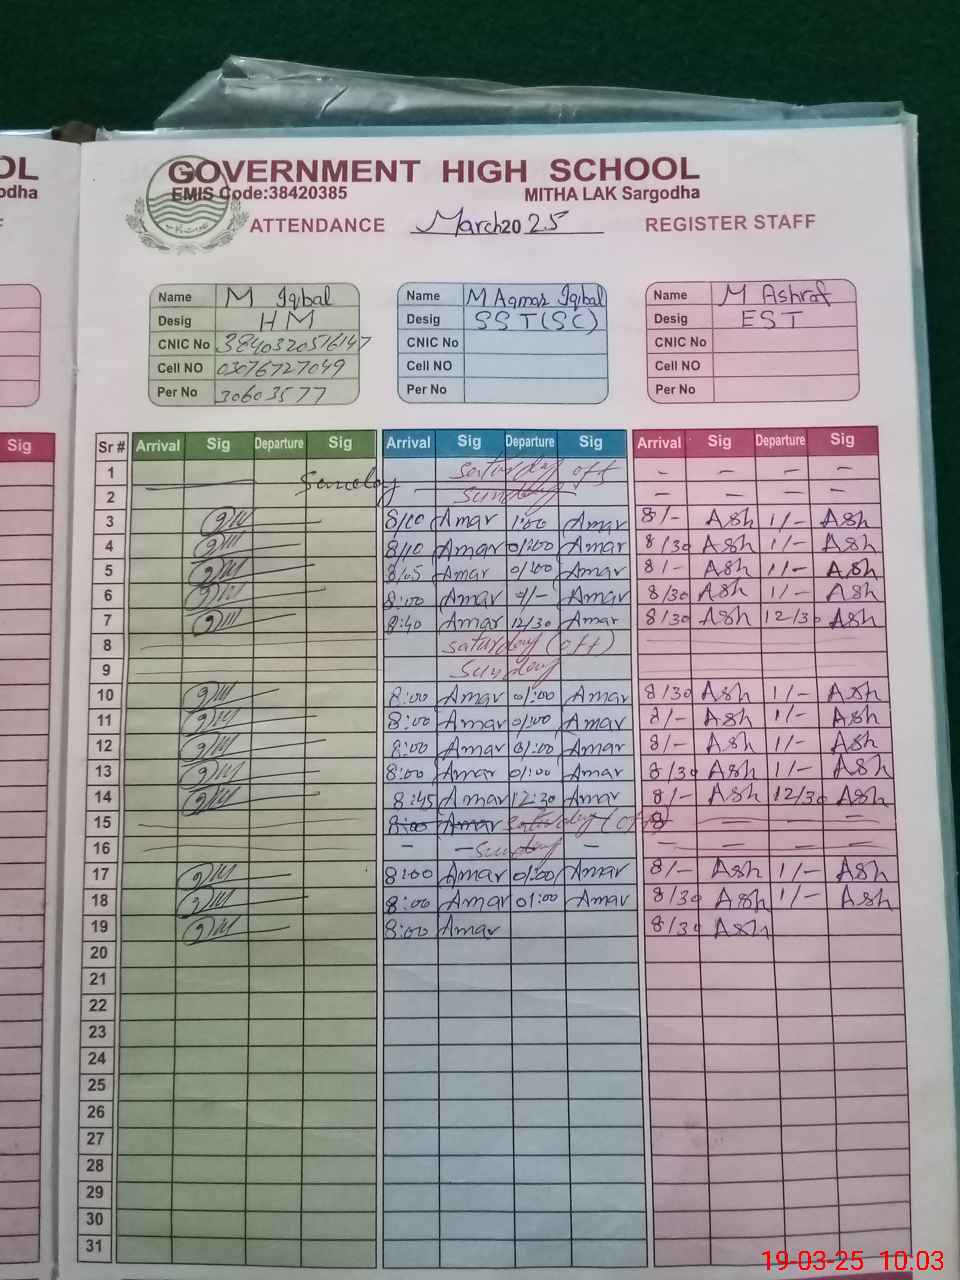 OL
odha
F
Sig
GOVERNMENT HIGH SCHOOL
EMIS Code:38420385 MITHA LAK Sargodha
ATTENDANCE March2025 REGISTER STAFF
Name M Iqbal Name M Aqmar Iqbal Name M Ashraf
Desig HM Desig SST(SC) Desig EST
CNIC No 3840320516147 CNIC No CNIC No
Cell NO 03076727049 Cell NO Cell NO
Per No 30603577 Per No Per No
Sr # Arrival Sig Departure Sig Arrival Sig Departure Sig Arrival Sig Departure Sig
1 saturday off - - - -
2 Sunday Sunday - - - -
3 8/10 Amar 1:00 Amar 8/- Ash 1/- Ash
4 8/10 Amar Amar 8/30 Ash 1/- Ash
5 8/:05 Amar Amar 8/- Ash 1/- Ash
6 8:00 Amar Amar 8/30 Ash 1/- Ash
7 8:40 Amar 12/30 Amar 8/30 Ash 12/30 Ash
8 saturday (off)
9 Sunday
10 8:00 Amar 01:00 Amar 8/30 Ash 1/- Ash
11 8:00 Amar 01:00 Amar 8/- Ash 1/- Ash
12 8:00 Amar 01:00 Amar 8/- Ash 1/- Ash
13 8:00 Amar 01:00 Amar 8/30 Ash 1/- Ash
14 8:45 Amar 12:30 Amar 8/- Ash 12/30 Ash
15 8:00 Amar saturday (off) 8
16 - - Sunday - - - - -
17 8:00 Amar 01:00 Amar 8/- Ash 1/- Ash
18 8:00 Amar 01:00 Amar 8/30 Ash 1/- Ash
19 8:00 Amar 8/30 Ash
20
21
22
23
24
25
26
27
28
29
30
31
19-03-25 10:03